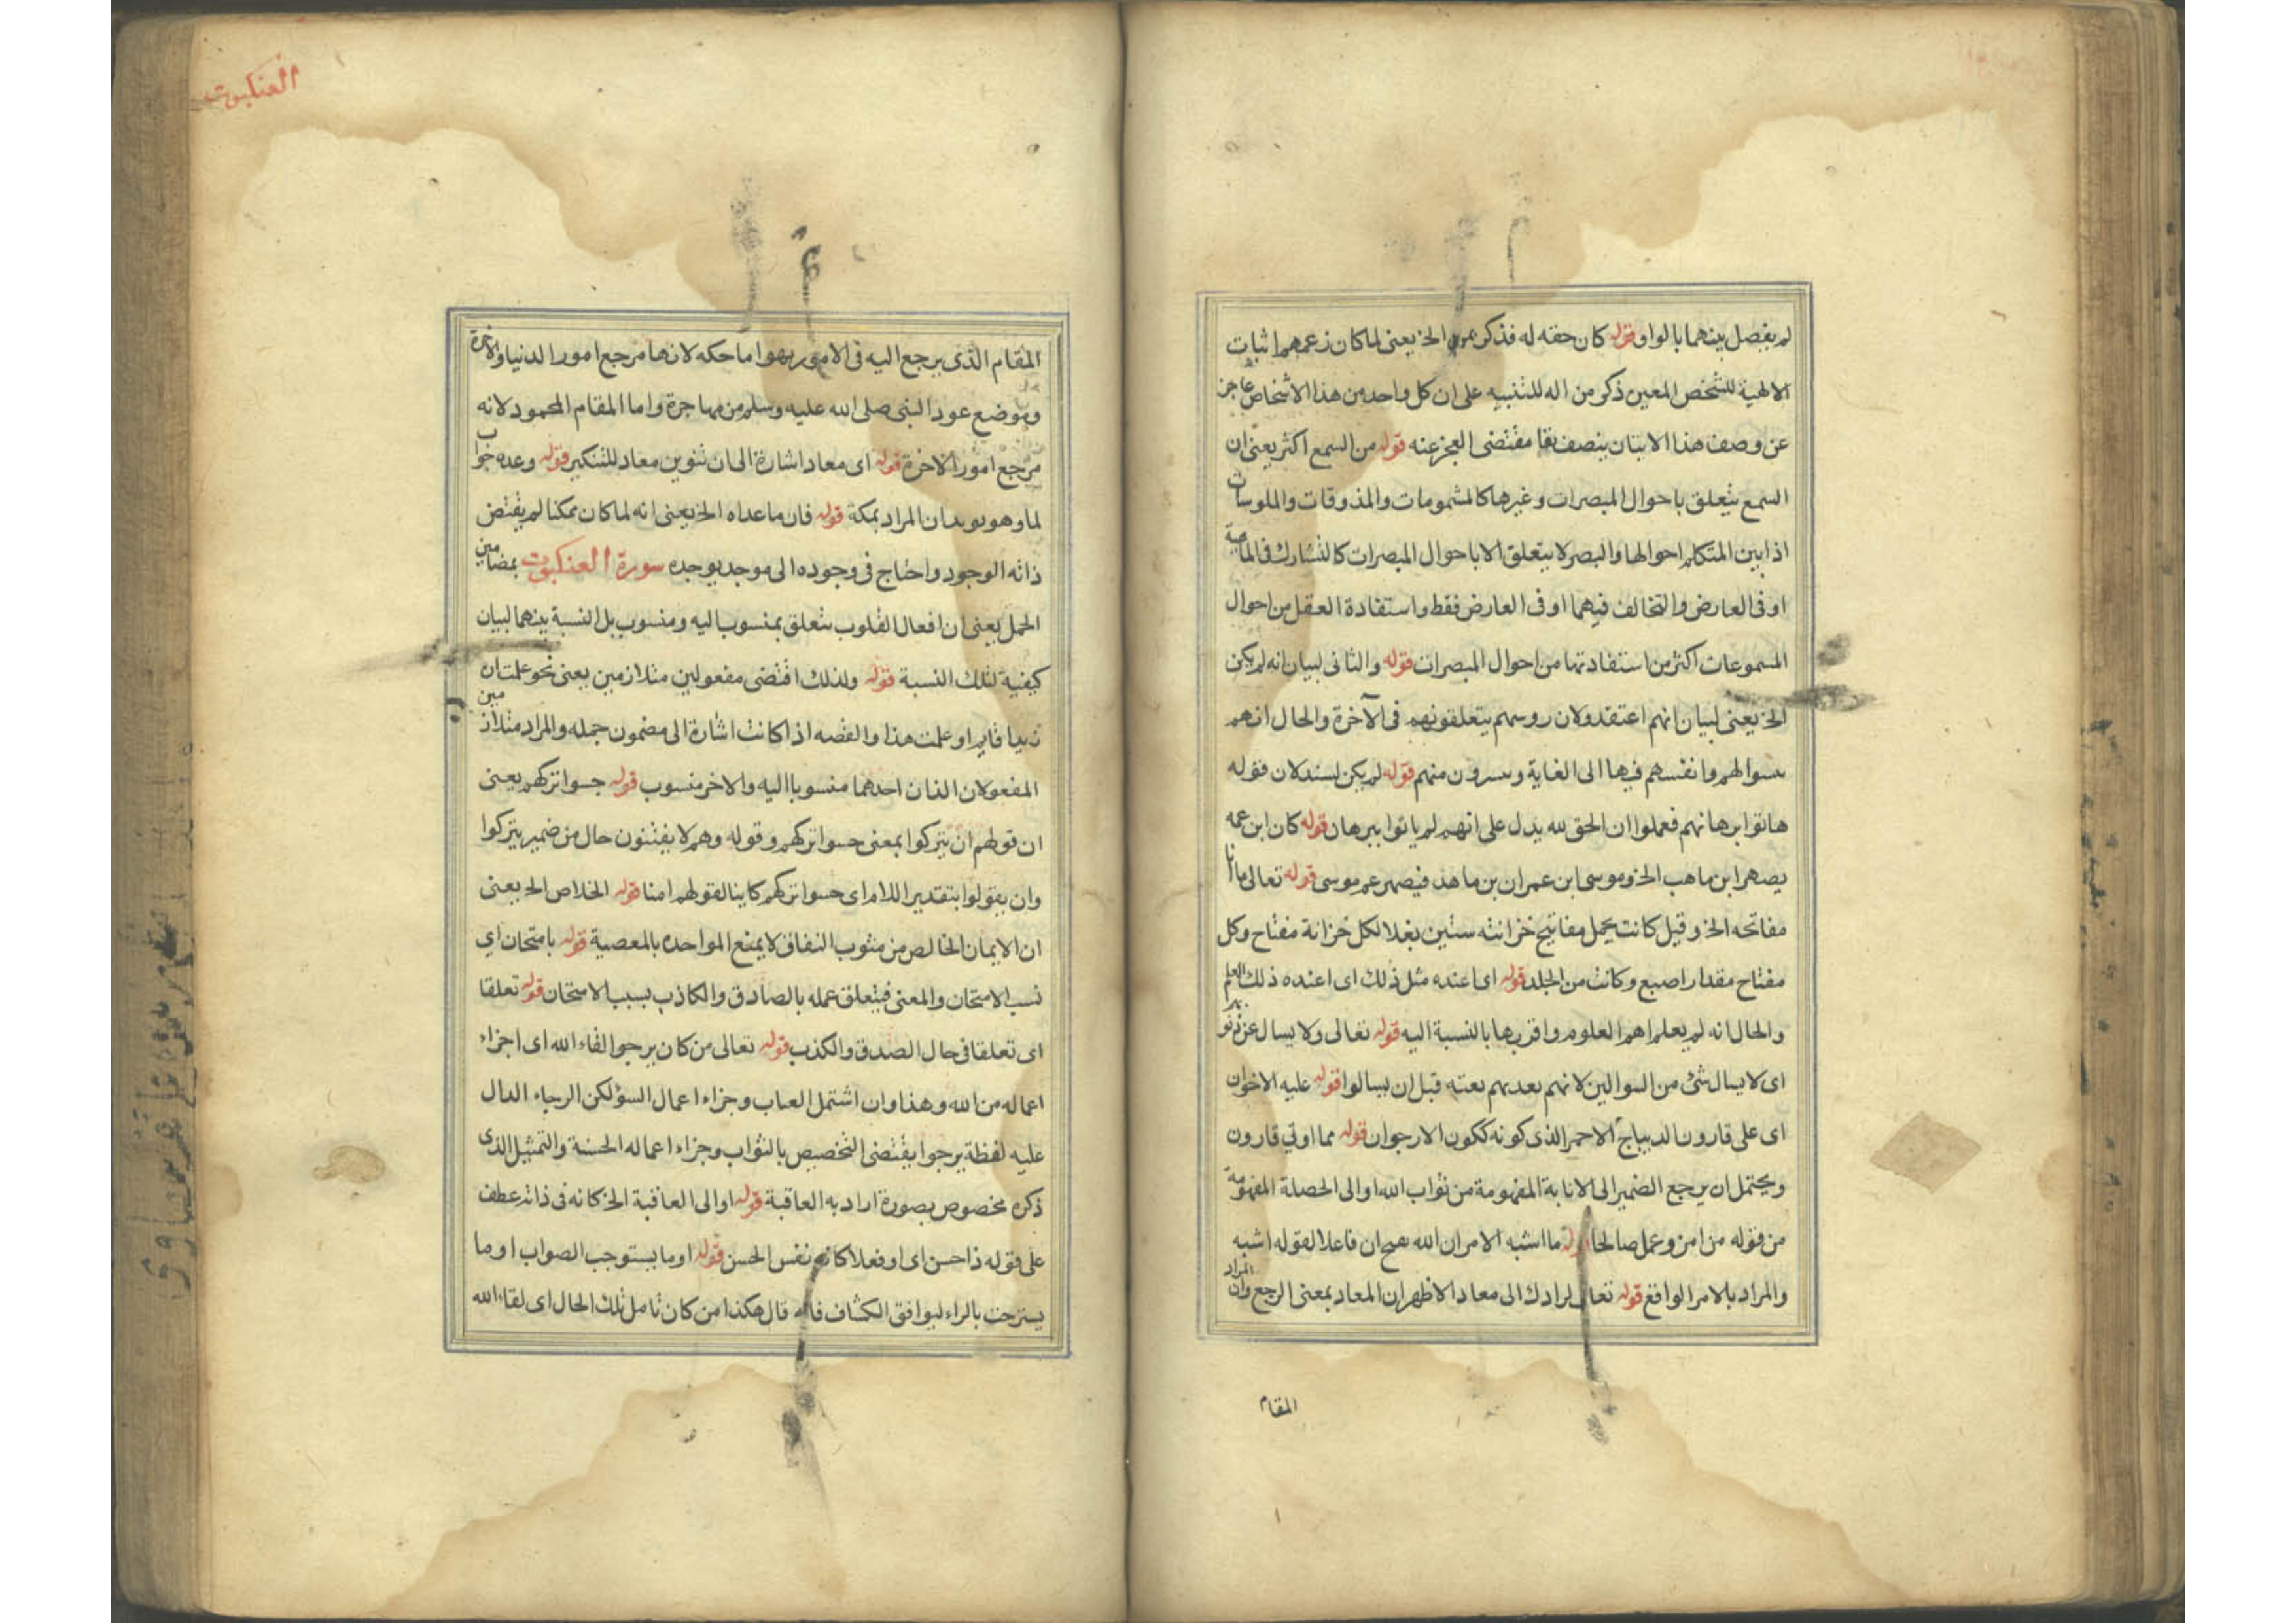 لم يفصل بينهما بالواو قوله كان حقه له فذكر الخ يعنى لما كان زعمهم اثبات
الالهية للشخص المعين ذكر من اله للتنبيه على ان كل واحد من هذا الاشخاص عاجز
عن وصف هذا الاتيان بنصف مقتضى العجز عنه قوله من السمع اكثر يعنى ان
السمع يتعلق باحوال المبصرات وغيرها كالمشمومات والمذوقات والملموسات
اذا بين المتكلم احوالها والبصر لا يتعلق الا باحوال المبصرات كالتشارك فى الماهية
او فى العارض والتخالف فيهما او فى العارض فقط واستفادة العقل من احوال
المسموعات اكثر من استفادتها من احوال المبصرات قوله والثانى لبيان انه لم يكن
الخ يعنى لبيان انهم اعتقدوا ان روسهم يتعلقونهم فى الآخرة والحال انهم
وانفسهم فيها الى الغاية ويبرون منهم قوله لم يكن لسند لان قوله
هاتوا برهانهم فعملوا ان الحق لله يدل على انهم لم ياتوا ببرهان قوله كان ابن عمه
يصهر ابن ماهب الخ وموسى ابن عمران بن ماهد فيصهر عم موسى قوله تعالى ما
مفاتحه الخ وقيل كانت يحمل مفاتيح خزانته ستين بغلا لكل خزانة مفتاح وكل
مفتاح مقدار اصبع وكانت من الجلد قوله اى اعنده مثل ذلك اى اعنده ذلك العلم
والحال انه لم يعلم اهم العلوم واقربها بالنسبة اليه قوله تعالى ولا يسال عن ذنوبهم
اى لا يسال شئ من السوالين لانهم يعذبهم بغتة قبل ان يسالوا قوله عليه الاخوان
اى على قارون الديباج الاحمر الذى كونه ككون الارجوان قوله مما اوتي قارون
ويحتمل ان يرجع الضمير الى الانابة المفهومة من ثواب الله او الى الخصلة المفهومة
من قوله من امن وعمل صالحا قوله ما اشبه الامر ان الله فاعلا لقوله اشبه
والمراد بالامر الواقع قوله تعالى لرادك الى معاد الاظهر ان المعاد بمعنى الرجع وان المراد
المقام
العنكبوت
المقام الذى يرجع اليه فى الامور بها اما حكه لانها مرجع امور الدنيا والاخرة
وموضع عود النبى صلى الله عليه وسلم من مهاجرة واما المقام المحمود لانه
مرجع امور الاخرة قوله اى معاد اشارة الى ان تنوين معاد للتنكير قوله وعده جواب
لما وهو يويد ان المراد بمكة قوله فان ما عداه الخ يعنى انه لما كان ممكنا لم يقتض
ذاته الوجود واحتاج فى وجوده الى موجد يوجده سورة العنكبوت بمضامين
الجمل يعنى ان افعال القلوب يتعلق بمنسوب اليه ومنسوب بل النسبة بينهما لبيان
كيفية تلك النسبة قوله ولذلك اقتضى مفعولين متلازمين يعنى نحو علمت ان
زيدا قايم او علمت هذا والقصه اذا كانت اشارة الى مضمون جمله والمراد متلازمين
المفعولان اللذان احدهما منسوبا اليه والاخر منسوب قوله حسبوا تركهم يعنى
ان قولهم ان يتركوا بمعنى حسبوا تركهم وقوله وهم لا يفتنون حال من ضمير يتركوا
وان يقولوا بتقدير اللام اى حسبوا تركهم كاينا لقولهم امنا قوله الخلاص الخ يعنى
ان الايمان الخالص من مثوب النفاق لا يمنع المواحده بالمعصية قوله بامتحان اي
نسب الامتحان والمعنى فيتعلق عمله بالصادق والكاذب بسبب الامتحان قوله تعلقا
اى تعلقا فى حال الصدق والكذب قوله تعالى من كان يرجوا لقاء الله اى اجزاء
اعماله من الله وهذا وان اشتمل العداب وجزاء اعمال السؤ لكن الرجاء الدال
عليه لفظة يرجوا يقتضى التخصيص بالثواب وجزاء اعماله الحسنة والتمثيل الذى
ذكره مخصوص بصورة اراد به العاقبة قوله او الى العاقبة الخ كانه فى ذاته عطف
على قوله ذا حسن اى او فعلا كانه نفس الحسن قوله او ما يستوجب الصواب او ما
يسترحت بالراء ليوافق الكشاف فانه قال هكذا من كان تامل تلك الحال اى لقاء الله